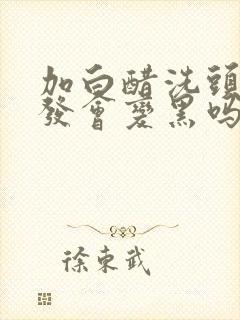 加白醋洗頭
發會變黑嗎
徐東武